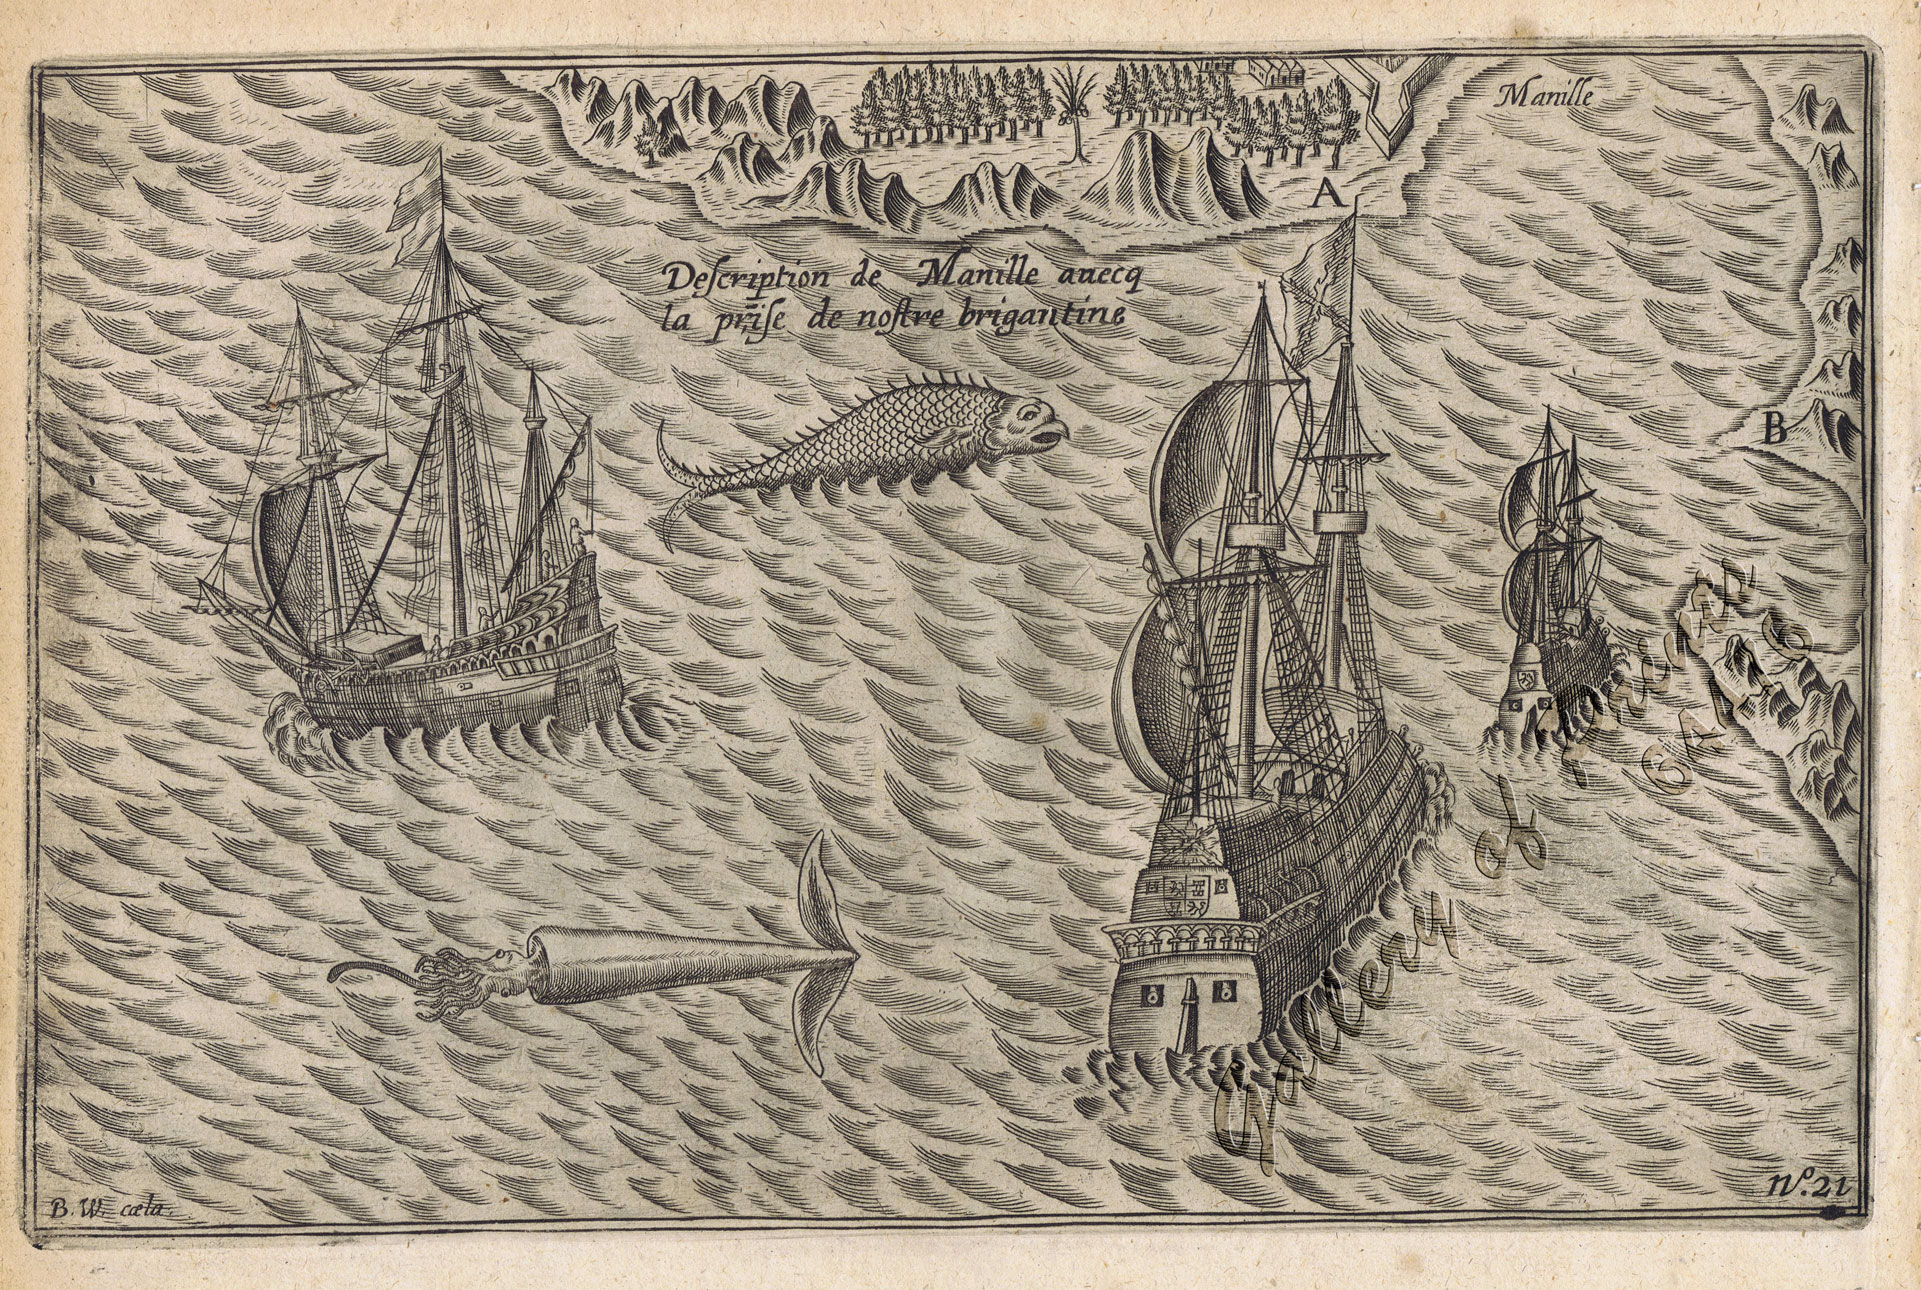 Manille
A
Deſcription de Manille auecq
la prĩſe de noſtre brigantine
B
Gallery of Prints
GA176
B. W. cœla.
Nº. 21